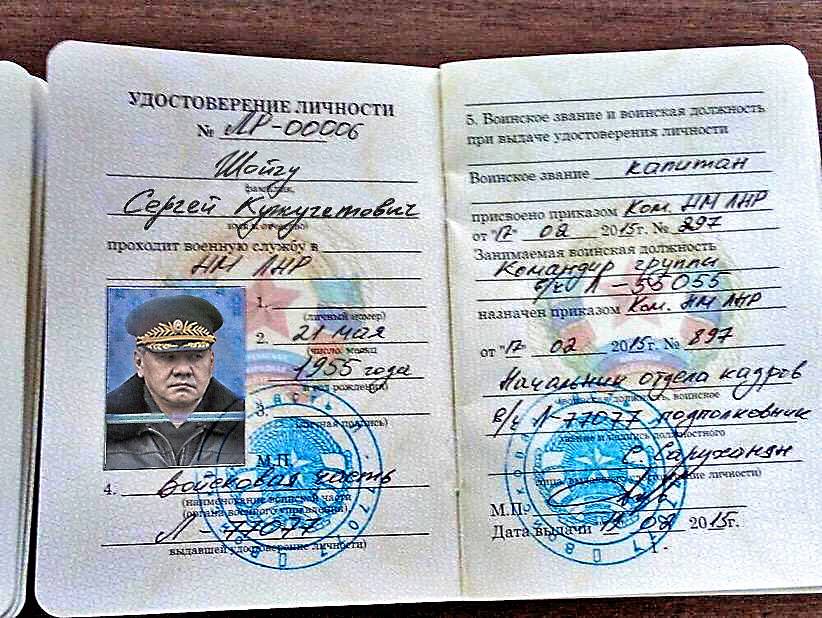 УДОСТОВЕРЕНИЕ ЛИЧНОСТИ
№ ЛР-00006
Шойгу
фамилия,
Сергей Кужугетович
имя и отчество)
проходит военную службу в
НМ ЛНР
1.
(личный номер)
2. 21 мая
(число, месяц
1955 года
и год рождения)
3.
(личная подпись)
М.П.
4. Войсковая часть
(наименование воинской части
(органа военного управления),
Л-77077
выдавшей удостоверение личности)
5. Воинское звание и воинская должность
при выдаче удостоверения личности
Воинское звание капитан
присвоено приказом Ком. НМ ЛНР
от "17" 02 2015г. № 297
Занимаемая воинская должность
Командир группы
в/ч Л-55055
назначен приказом Ком. НМ ЛНР
от "17" 02 2015г. № 897
Начальник отдела кадров
(воинская должность, воинское
в/ч Л-77077 подполковник
звание и подпись должностного
С. Саруханян
лица, выдавшего удостоверение личности)
М.П.
Дата выдачи 08 2015г.